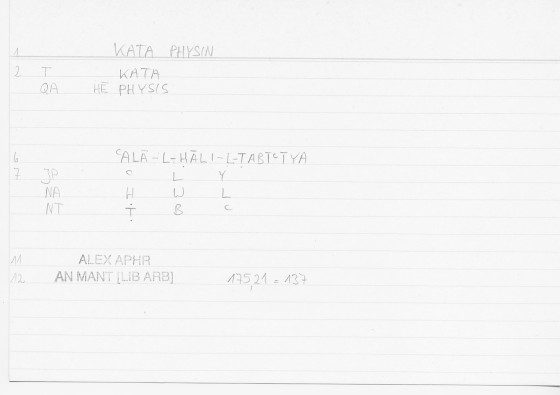 1 KATA PHYSIN
2 T KATA
QA HĒ PHYSIS
6 ʿALĀ-L-ḤĀLI-L-ṬABĪʿĪYA
7 JP ʿ L Y
NA Ḥ W L
NT Ṭ B ʿ
11 ALEX APHR
12 AN MANT [LIB ARB] 175,21 = 137